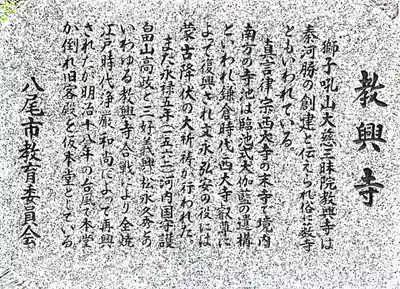 教興寺
獅子吼山大慈三昧院教興寺は
秦河勝の創建と伝えられ俗に教寺
ともいわれている。
真言律宗西大寺の末寺で境内
南方の寺池は臨池式大伽藍の遺構
といわれ鎌倉時代西大寺叡尊に
よって復興され文永弘安の役には
蒙古降伏の大祈祷が行われた。
また永禄五年(一五六二)河内国守護
畠山高政と三好義興松永久秀との
いわゆる教興寺合戦により全焼
江戸時代浄厳和尚によって再興
されたが明治十八年の台風で本堂
が倒れ旧客殿を仮本堂としている
八尾市教育委員会